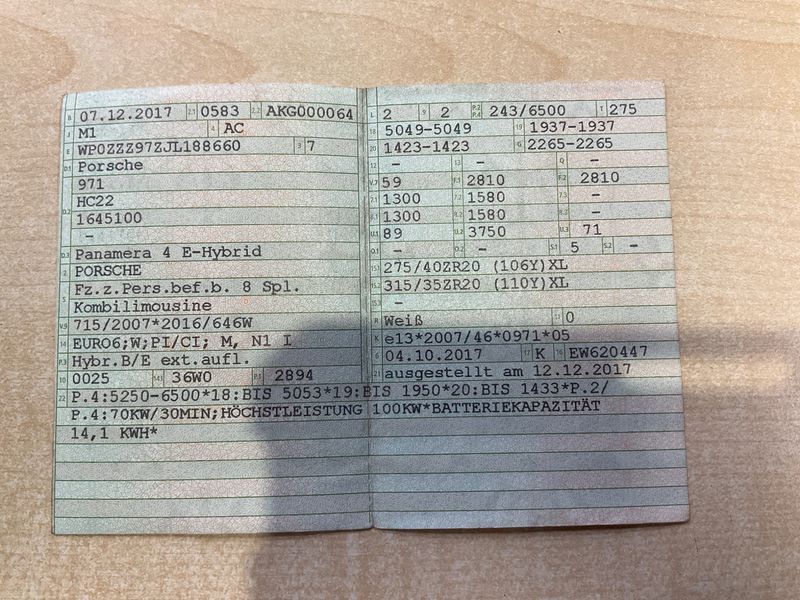 B 07.12.2017 2.1 0583 2.2 AKG000064
J M1 4 AC
E WP0ZZZ97ZJL188660 3 7
D.1 Porsche
971
D.2 HC22
1645100
-
D.3 Panamera 4 E-Hybrid
2 PORSCHE
5 Fz.z.Pers.bef.b. 8 Spl.
Kombilimousine
V.9 715/2007*2016/646W
14 EURO6;W;PI/CI; M, N1 I
P.3 Hybr.B/E ext.aufl.
10 0025 14.1 36W0 P.1 2894
L 2 9 2 P.2 P.4 243/6500 T 275
18 5049-5049 19 1937-1937
20 1423-1423 G 2265-2265
12 - 13 - Q -
V.7 59 F.1 2810 F.2 2810
7.1 1300 7.2 1580 7.3 -
8.1 1300 8.2 1580 8.3 -
U.1 89 U.2 3750 U.3 71
O.1 - O.2 - S.1 5 S.2 -
15.1 275/40ZR20 (106Y)XL
15.2 315/35ZR20 (110Y)XL
15.3 -
R Weiß 11 0
K e13*2007/46*0971*05
6 04.10.2017 17 K 16 EW620447
21 ausgestellt am 12.12.2017
22 P.4:5250-6500*18:BIS 5053*19:BIS 1950*20:BIS 1433*P.2/
P.4:70KW/30MIN;HÖCHSTLEISTUNG 100KW*BATTERIEKAPAZITÄT
14,1 KWH*